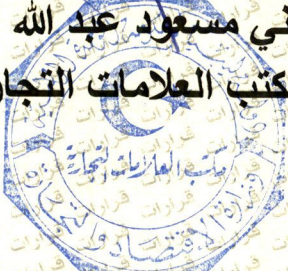 ني مسعود عبد الله
كتب العلامات التجار
مكتب العلامات التجارية
وزارة الاقتصاد والتجارة
قرارات